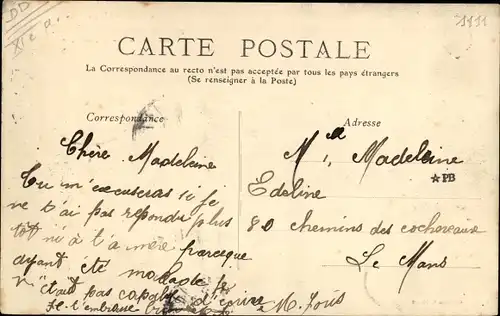 DD
XIe a.
1111
CARTE POSTALE
La Correspondance au recto n'est pas acceptée par tous les pays étrangers
(Se renseigner à la Poste)
Correspondance
Adresse
Chère Madeleine
Tu m'excuseras si je
ne t'ai pas repondu plus
tôt ni à ta mère parceque
ayant été malade je
n'était pas capable d'écrire
Je t'embrasse bien
M. Joris
Melle Madeleine
Edeline
80 chemins des cochereaux
Le Mans
★PB